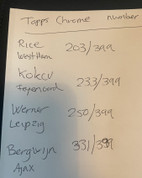 Topps Chrome Number
Rice 203/399
West Ham
Kokcu 233/399
Feyenoord
Werner 250/399
Leipzig
Bergwijn 331/399
Ajax